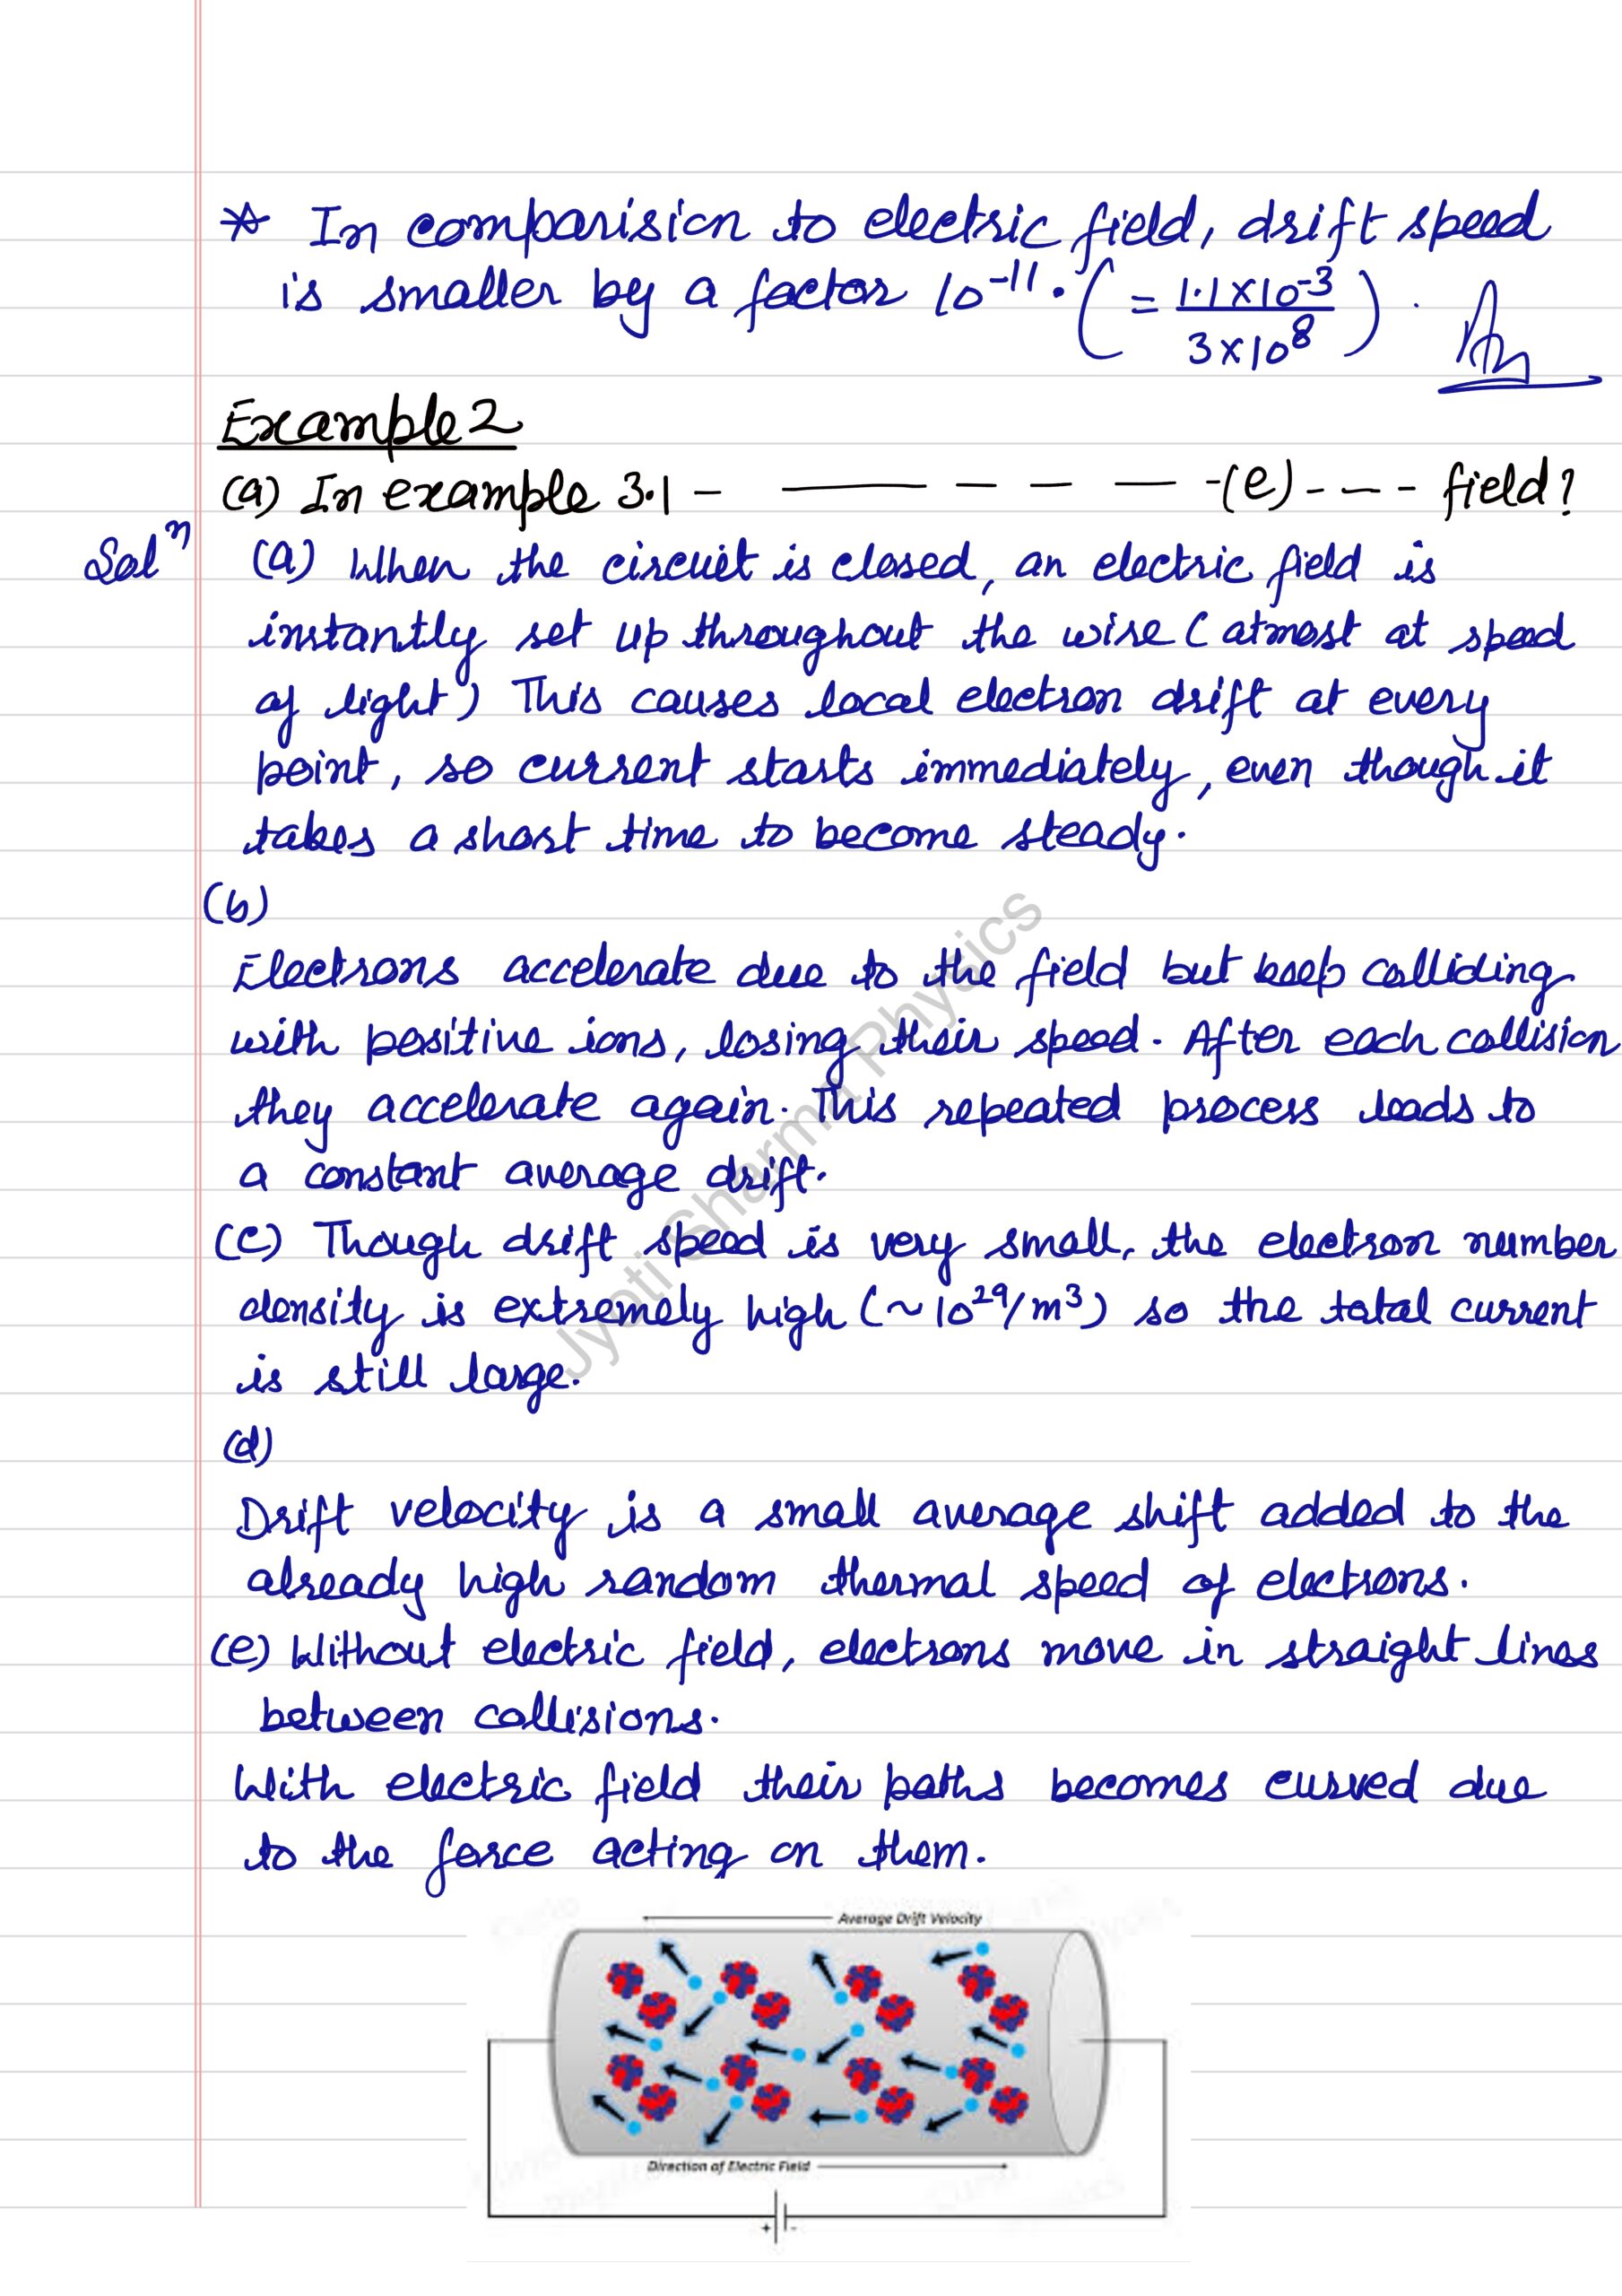 * In comparision to electric field, drift speed
is smaller by a factor 10⁻¹¹. ( = 1.1×10⁻³ / 3×10⁸ ) .
Example 2
(a) In example 3.1 - —— - - — -(e)- - - - field?
Solⁿ (a) When the circuit is closed, an electric field is
instantly set up throughout the wire (atmost at speed
of light) This causes local electron drift at every
point, so current starts immediately, even though it
takes a short time to become steady.
(b)
Electrons accelerate due to the field but keep colliding
with positive ions, losing their speed. After each collision
they accelerate again. This repeated process leads to
a constant average drift.
(c) Though drift speed is very small, the electron number
density is extremely high (~10²⁹/m³) so the total current
is still large.
(d)
Drift velocity is a small average shift added to the
already high random thermal speed of electrons.
(e) Without electric field, electrons move in straight lines
between collisions.
With electric field their paths becomes curved due
to the force acting on them.
Average Drift Velocity
Direction of Electric Field
+ -
Jyoti Sharma Physics